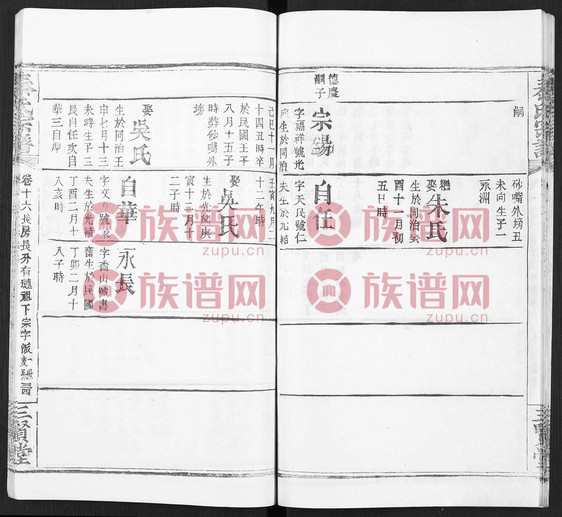 嗣
德慶
嗣子
宗錫
字福祥號光
於同治
己巳十一月
十四丑時卒
於民國壬午
八月十五子
時葬砂嘴外
塆
娶
吳氏
生於同治壬
申七月十三
未時生子三
長自任次自
華三自
砂嘴外塆丑
未向生子一
永洲
繼娶
朱氏
生於同治癸
酉十一月初
五日時
自任
字天民號仁
夫生於光緒
壬寅九月二
十二午時
娶
吳氏
生於光緒庚
寅十二月十
二子時
自華
字文
夫生於光緒
丁酉二月十
八亥時
永長
字香山號書
舊生於民國
丁卯二月十
八子時
卷十六長房長分有
祖下宗字派
三賢堂
三賢堂
族谱网
zupu.cn
族谱网
zupu.cn
族谱网
zupu.cn
族谱网
zupu.cn